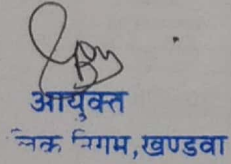 आयुक्त
निगम, खण्डवा